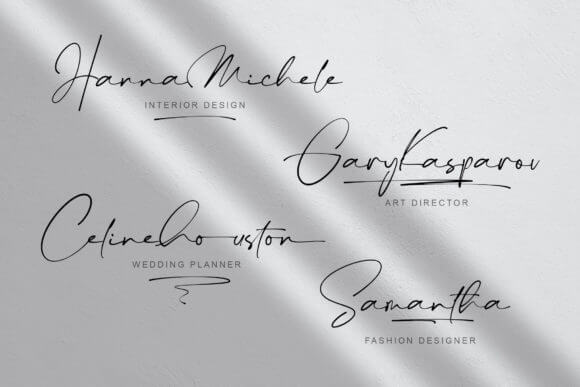 Hanna Michele
INTERIOR DESIGN
GaryKasparov
ART DIRECTOR
Celinehouston
WEDDING PLANNER
Samantha
FASHION DESIGNER